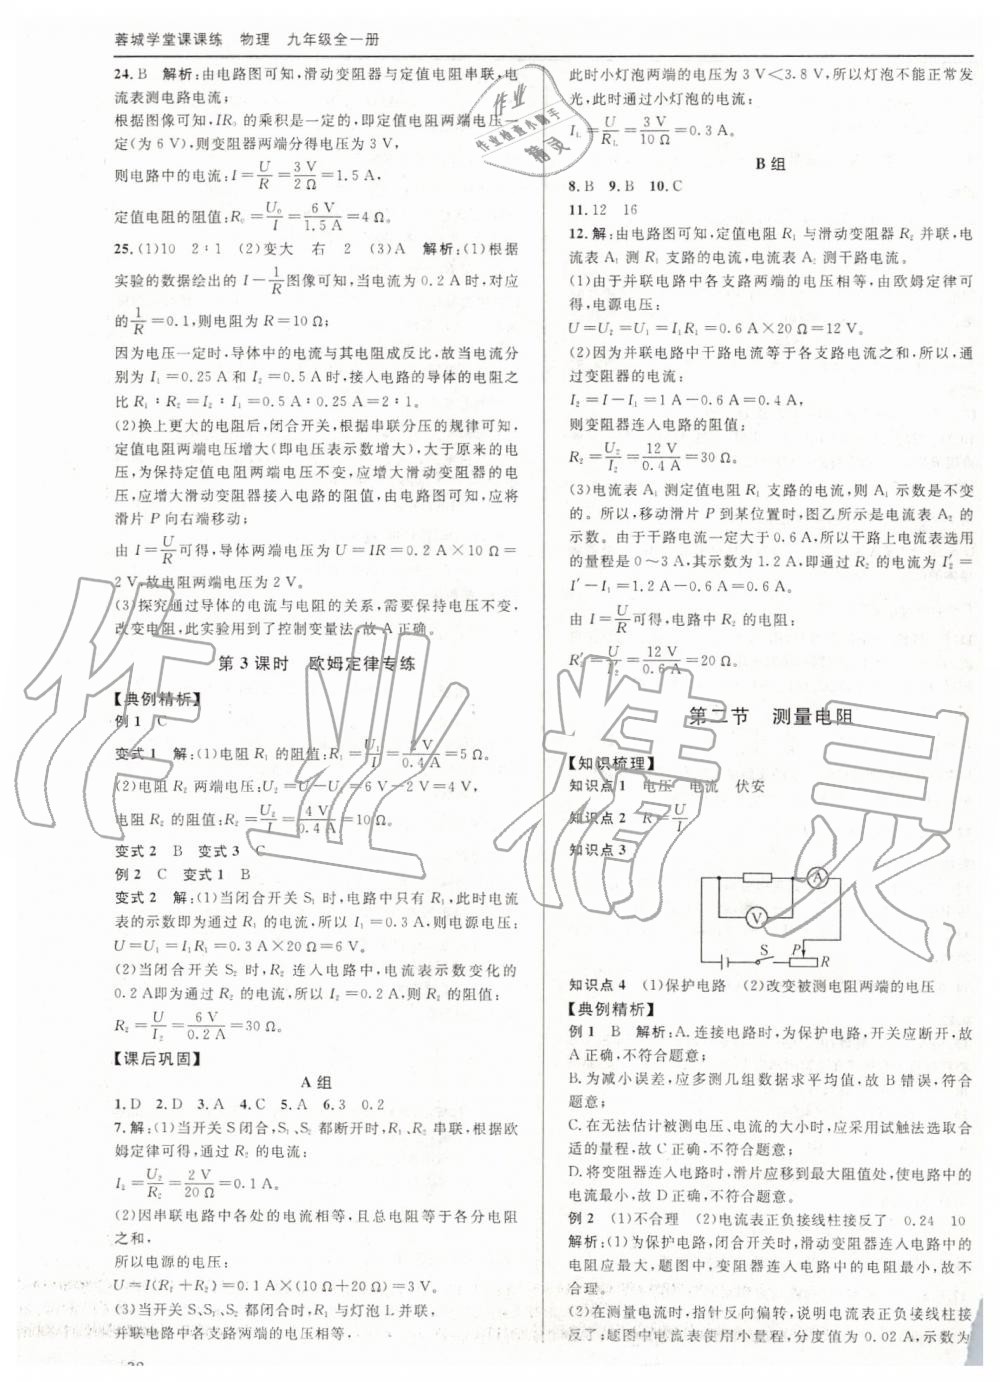 蓉城学堂课课练　物理　九年级全一册
24. B　解析:由电路图可知,滑动变阻器与定值电阻串联,电
流表测电路电流;
根据图像可知,IR₀ 的乘积是一定的,即定值电阻两端电压一
定(为 6 V),则变阻器两端分得电压为 3 V,
则电路中的电流:I=U/R=3 V/2 Ω=1.5 A,
定值电阻的阻值:R₀=U₀/I=6 V/1.5 A=4 Ω。
25. (1)10　2∶1　(2)变大　右　2　(3)A　解析:(1)根据
实验的数据绘出的 I－1/R图像可知,当电流为 0.2 A 时,对应
的1/R=0.1,则电阻为 R=10 Ω;
因为电压一定时,导体中的电流与其电阻成反比,故当电流分
别为 I₁=0.25 A 和 I₂=0.5 A 时,接入电路的导体的电阻之
比 R₁∶R₂=I₂∶I₁=0.5 A∶0.25 A=2∶1。
(2)换上更大的电阻后,闭合开关,根据串联分压的规律可知,
定值电阻两端电压增大(即电压表示数增大),大于原来的电
压,为保持定值电阻两端电压不变,应增大滑动变阻器的电
压,应增大滑动变阻器接入电路的阻值,由电路图可知,应将
滑片 P 向右端移动;
由 I=U/R可得,导体两端电压为 U=IR=0.2 A×10 Ω=
2 V,故电阻两端电压为 2 V。
(3)探究通过导体的电流与电阻的关系,需要保持电压不变,
改变电阻,此实验用到了控制变量法,故 A 正确。
第 3 课时　欧姆定律专练
【典例精析】
例 1　C
变式 1　解:(1)电阻 R₁ 的阻值:R₁=U₁/I=2 V/0.4 A=5 Ω。
(2)电阻 R₂ 两端电压:U₂=U－U₁=6 V－2 V=4 V,
电阻 R₂ 的阻值:R₂=U₂/I=4 V/0.4 A=10 Ω。
变式 2　B　变式 3　C
例 2　C　变式 1　B
变式 2　解:(1)当闭合开关 S₁ 时,电路中只有 R₁,此时电流
表的示数即为通过 R₁ 的电流,所以 I₁=0.3 A,则电源电压:
U=U₁=I₁R₁=0.3 A×20 Ω=6 V。
(2)当闭合开关 S₂ 时,R₂ 连入电路中,电流表示数变化的
0.2 A即为通过 R₂ 的电流,所以 I₂=0.2 A,则 R₂ 的阻值:
R₂=U/I₂=6 V/0.2 A=30 Ω。
【课后巩固】
A 组
1. D　2. D　3. A　4. C　5. A　6. 3　0.2
7. 解:(1)当开关 S 闭合,S₁、S₂ 都断开时,R₁、R₂ 串联,根据欧
姆定律可得,此时电路中的电流:
I₂=U₂/R₂=2 V/20 Ω=0.1 A。
(2)因串联电路中各处的电流相等,且总电阻等于各分电阻
之和,
所以电源的电压:
U=I(R₁+R₂)=0.1 A×(10 Ω+20 Ω)=3 V。
(3)当开关 S、S₁、S₂ 都闭合时,R₁ 与灯泡 L 并联,
并联电路中各支路两端的电压相等,
此时小灯泡两端的电压为 3 V＜3.8 V,所以灯泡不能正常发
光,此时通过小灯泡的电流:
I_L=U/R_L=3 V/10 Ω=0.3 A。
B 组
8. B　9. B　10. C
11. 12　16
12. 解:由电路图可知,定值电阻 R₁ 与滑动变阻器 R₂ 并联,电
流表 A₁ 测 R₁ 支路的电流,电流表 A₂ 测干路电流。
(1)由于并联电路中各支路两端的电压相等,由欧姆定律可
得,电源电压:
U=U₂=U₁=I₁R₁=0.6 A×20 Ω=12 V。
(2)因为并联电路中干路电流等于各支路电流之和,所以,通
过变阻器的电流:
I₂=I－I₁=1 A－0.6 A=0.4 A,
则变阻器连入电路的阻值:
R₂=U₂/I₂=12 V/0.4 A=30 Ω。
(3)电流表 A₁ 测定值电阻 R₁ 支路的电流,则 A₁ 示数是不变
的。所以,移动滑片 P 到某位置时,图乙所示是电流表 A₂ 的
示数。由于干路电流一定大于 0.6 A,所以干路上电流表选用
的量程是 0～3 A,其示数为 1.2 A,即通过 R₂ 的电流为 I₂′=
I′－I₁=1.2 A－0.6 A=0.6 A,
由 I=U/R可得,电路中 R₂ 的电阻:
R₂′=U₂/I₂′=12 V/0.6 A=20 Ω。
第二节　测量电阻
【知识梳理】
知识点 1　电压　电流　伏安
知识点 2　R=U/I
知识点 3
A
V
S　P
R
知识点 4　(1)保护电路　(2)改变被测电阻两端的电压
【典例精析】
例 1　B　解析:A. 连接电路时,为保护电路,开关应断开,故
A 正确,不符合题意;
B. 为减小误差,应多测几组数据求平均值,故 B 错误,符合
题意;
C. 在无法估计被测电压、电流的大小时,应采用试触法选取合
适的量程,故 C 正确,不符合题意;
D. 将变阻器连入电路时,滑片应移到最大阻值处,使电路中的
电流最小,故 D 正确,不符合题意。
例 2　(1)不合理　(2)电流表正负接线柱接反了　0.24　10
解析:(1)为保护电路,闭合开关时,滑动变阻器连入电路中的
电阻应最大,题图中,变阻器连入电路中的电阻最小,故不
合理。
(2)在测量电流时,指针反向偏转,说明电流表正负接线柱接
反了;题图中电流表使用小量程,分度值为 0.02 A,示数为
作业
作业检查小助手
精灵
作业精灵